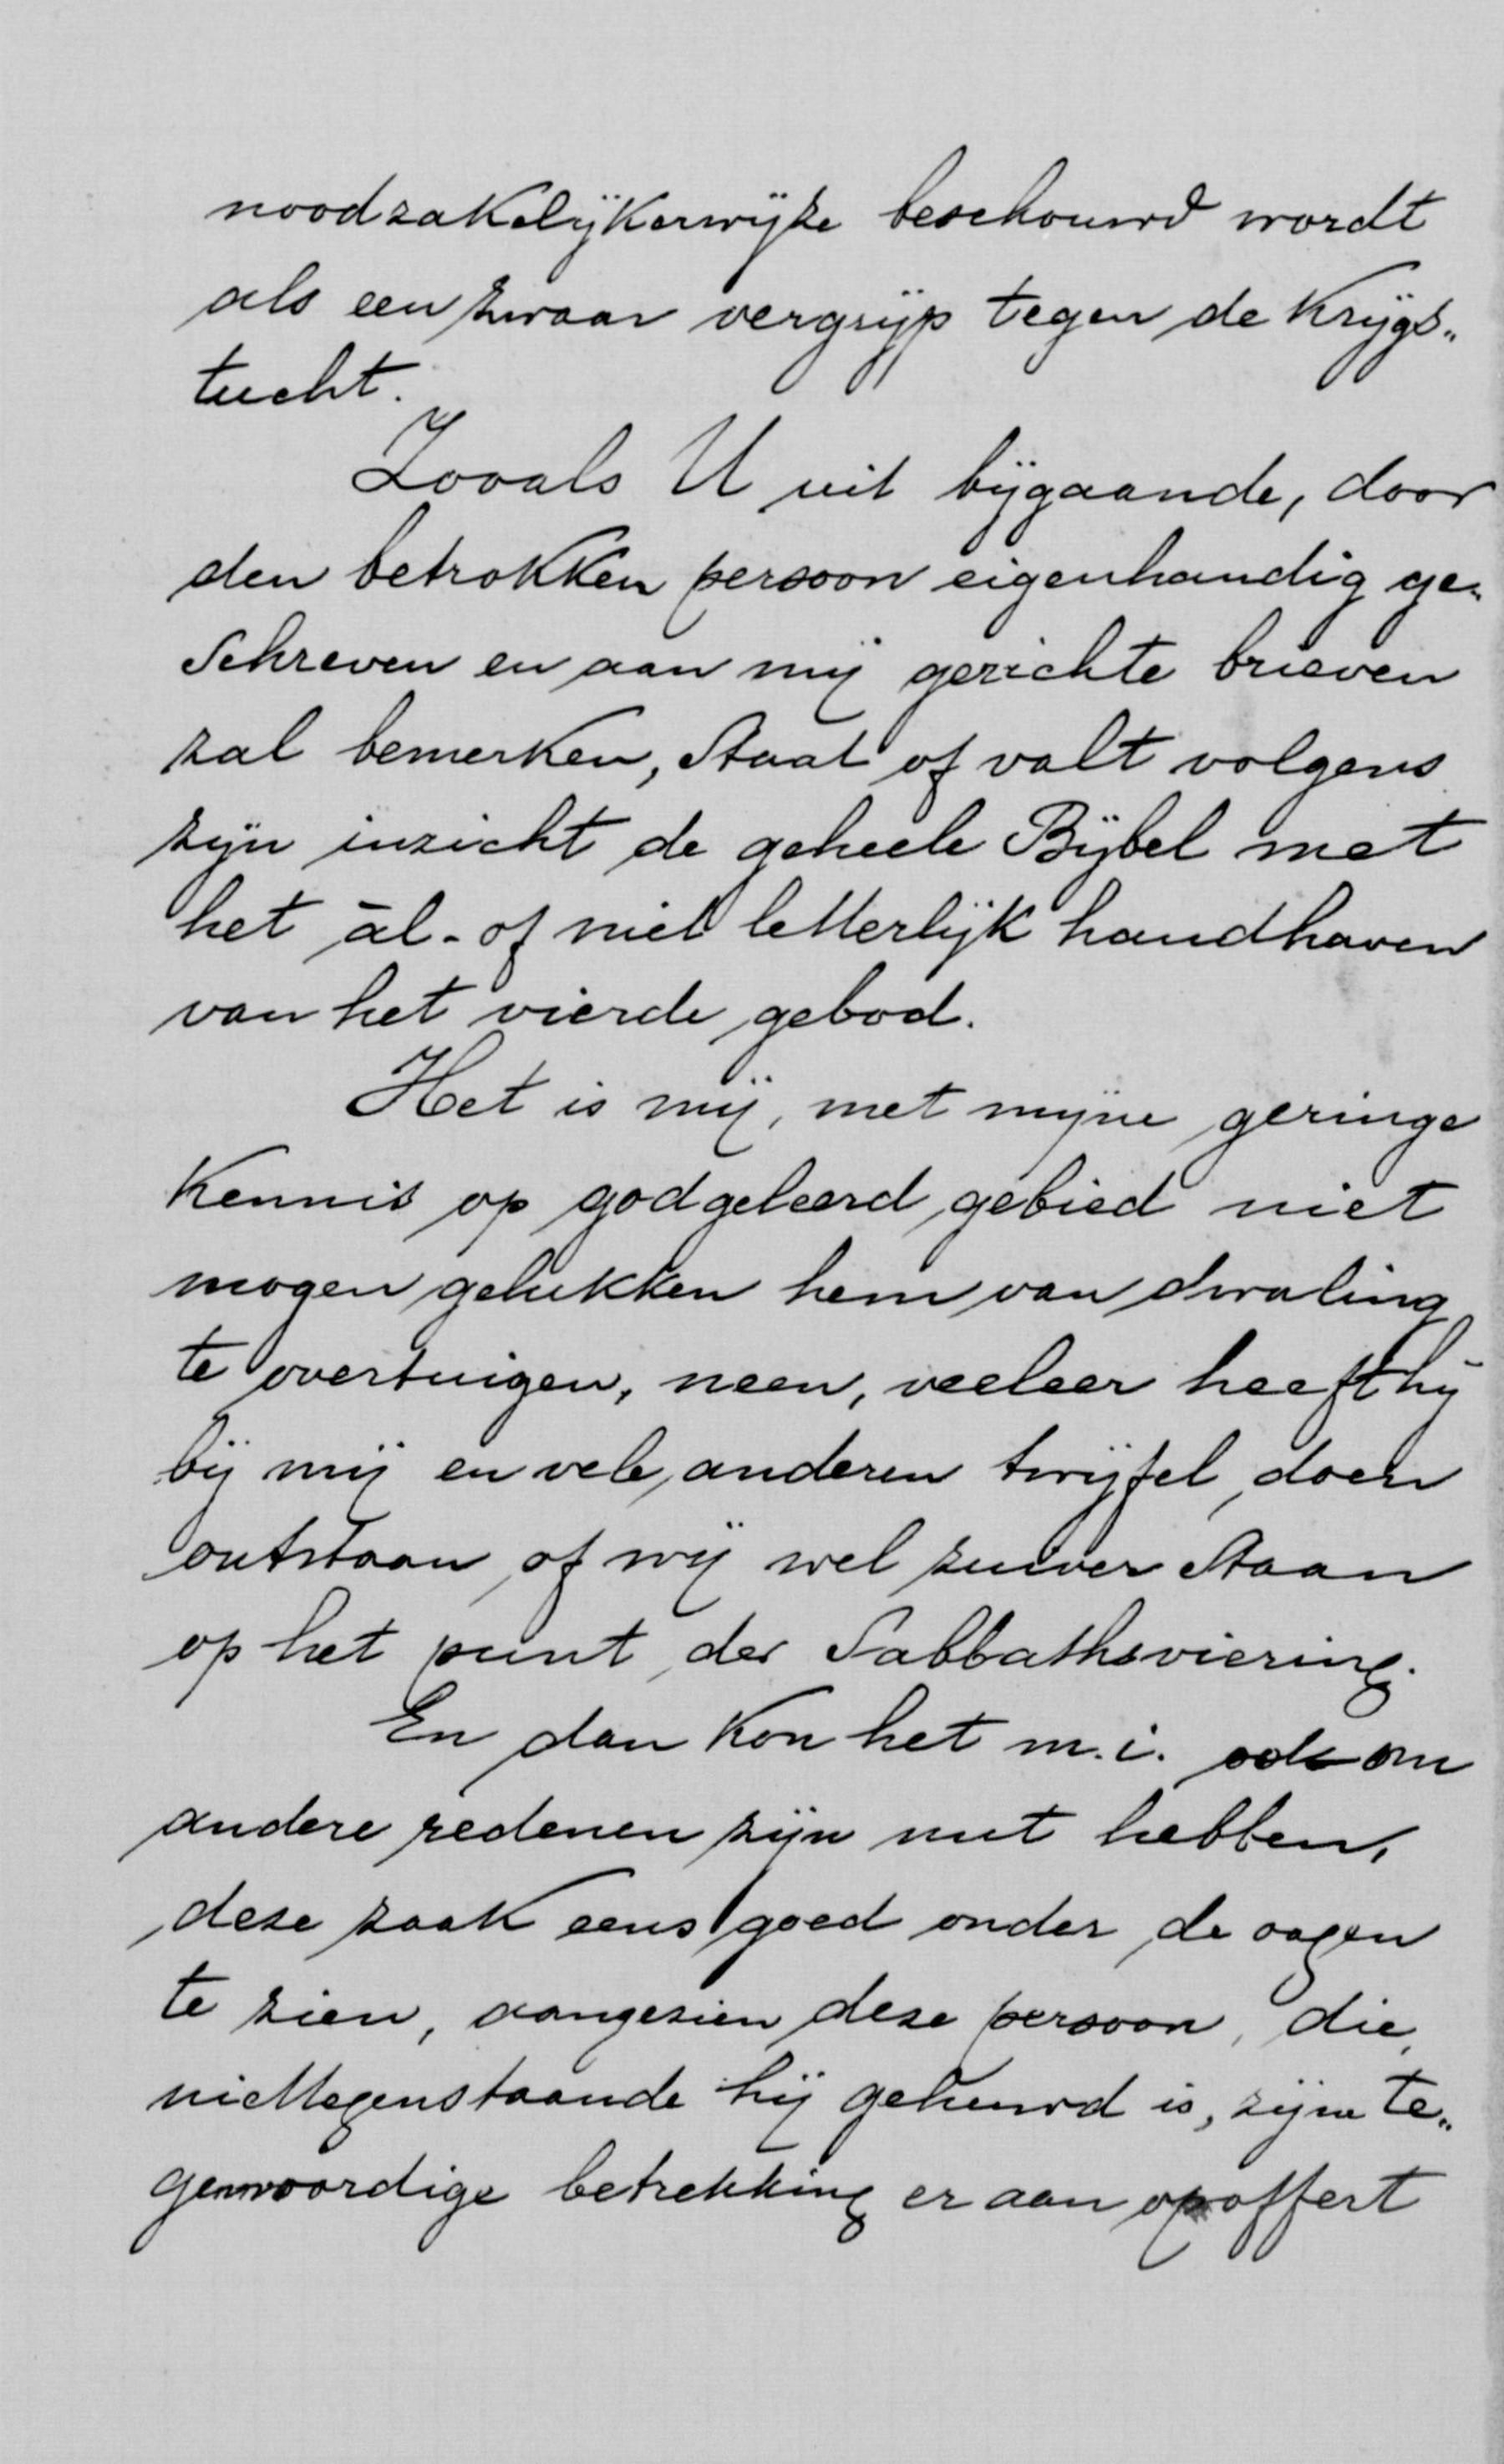 noodzakelijkerwijze beschouwd wordt
als een zwaar vergrijp tegen de Krijgs„
tucht.
Zooals U uit bijgaande, door
den betrokken persoon eigenhandig ge„
schreven en aan mij gerichte brieven
zal bemerken, staat of valt volgens
zijn inzicht de geheele Bijbel met
het àl- of niet letterlijk handhaven
van het vierde gebod.
Het is mij, met mijne geringe
Kennis op godgeleerd gebied niet
mogen gelukken hem van dwaling
te overtuigen, neen, veeleer heeft hij
bij mij en vele anderen twijfel doen
ontstaan of wij wel zuiver staan
op het punt der Sabbathsviering.
En dan kon het m.i. ook om
andere redenen zijn nut hebben,
deze zaak eens goed onder de oogen
te zien, aangezien deze persoon, die,
niettegenstaande hij gehuwd is, zijne te„
genwoordige betrekking er aan opoffert